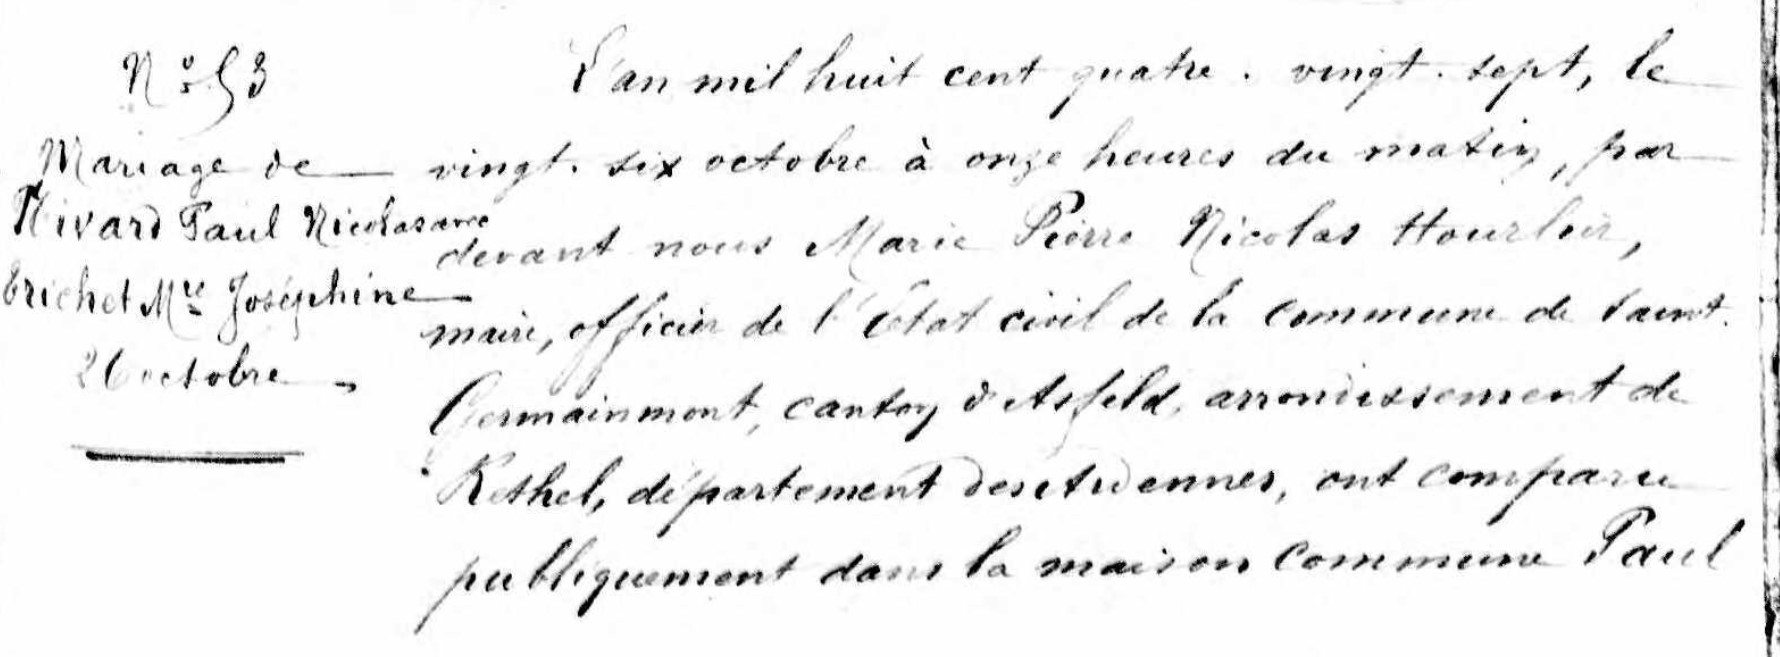 N° 53
Mariage de
Nivard Paul Nicolas avec
Trichet Mie Joséphine
26 octobre
L'an mil huit cent quatre-vingt-sept, le
vingt-six octobre à onze heures du matin, par
devant nous Marie Pierre Nicolas Hourlier,
maire, officier de l'État civil de la commune de Saint-
Germainmont, canton d'Asfeld, arrondissement de
Rethel, département des Ardennes, ont comparu
publiquement dans la maison commune Paul